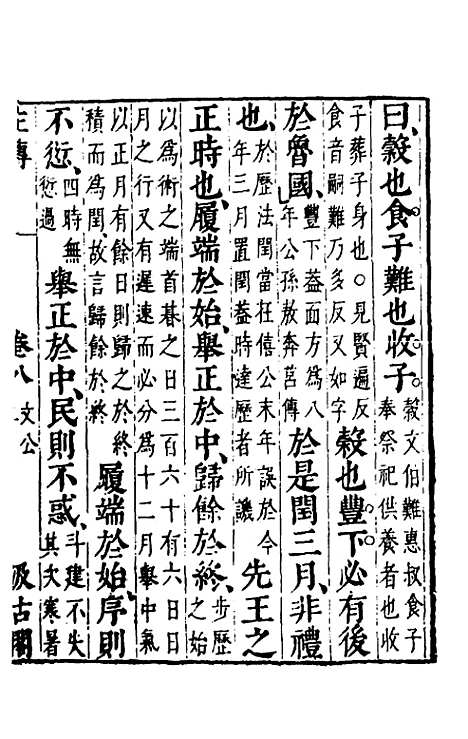 曰、穀也食子難也收子。穀文伯難惠叔食子
奉祭祀供養者也收
子葬子身也○見賢遍反
食音嗣難乃多反又如字
穀也豐下必有後
於魯國、豐下葢面方爲八
年公孫敖奔莒傳
於是閏三月、非禮
也、於歷法閏當在僖公末年誤於今
年三月置閏葢時達歷者所譏
先王之
正時也、履端於始、舉正於中、歸餘於終、步歷
之始
以爲術之端首朞之日三百六十有六日日
月之行又有遲速而必分爲十二月舉中氣
以正月有餘日則歸之於終
積而爲閏故言歸餘於終
履端於始、序則
不愆、四時無
愆過
舉正於中、民則不惑、斗建不失
其次寒暑
左傳
卷八
文公
汲古閣